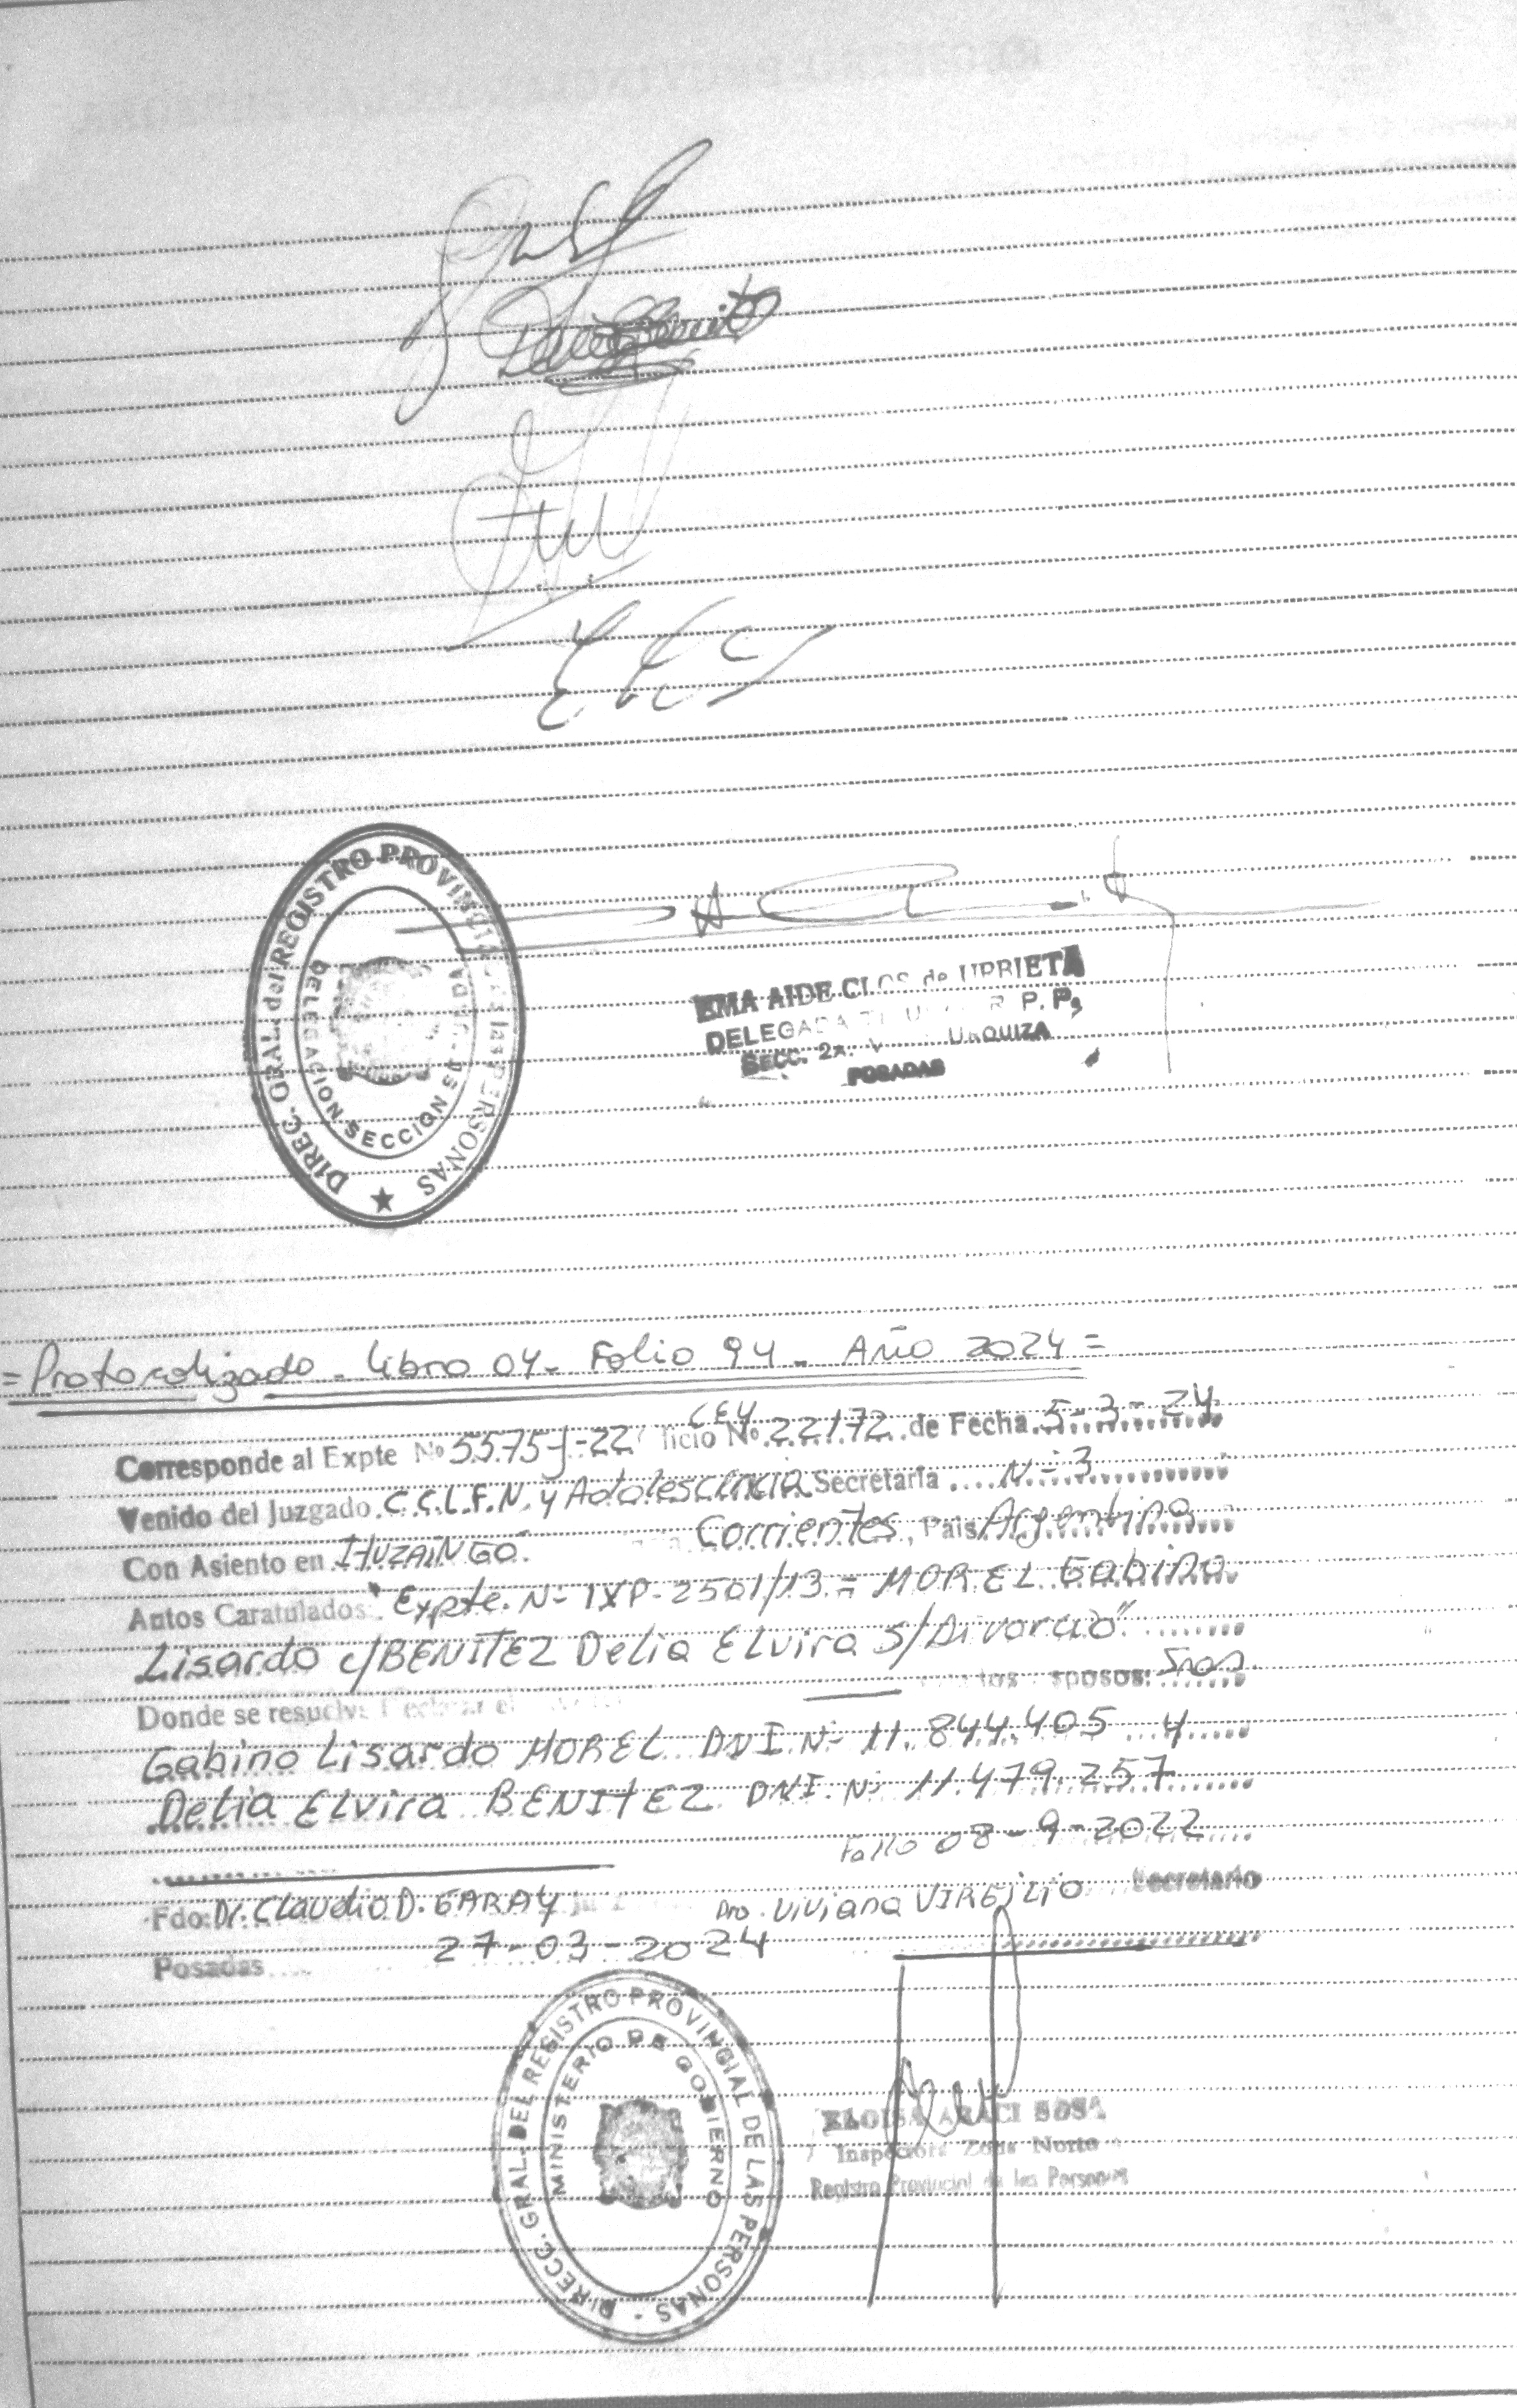 DIREC. GRAL. del REGISTRO PROVINCIAL de las PERSONAS
DELEGACION SECCION
EMA AIDE CLOS de URRIETA
DELEGADA R. P. P.
SECC. 2a. URQUIZA
POSADAS
= Protocolizado - Libro 04 - Folio 94 - Año 2024 =
Corresponde al Expte Nº 5575-J-22 ficio Nº 22172 de Fecha 5-3-24
Venido del Juzgado C.C.L.F.N. y Adolescencia Secretaría Nº 3
Con Asiento en ITUZAINGÓ. Corrientes, País Argentina
Autos Caratulados: "Expte. Nº IXP-2501/13 = MOREL Gabino
Lisardo c/BENITEZ Delia Elvira S/Divorcio"
Donde se resuelve los sposos: Sres.
Gabino Lisardo MOREL DNI. Nº 11.844.405 y
Delia Elvira BENITEZ DNI. Nº 11.479.257
Fallo 08-9-2022
Fdo: Dr. Claudio D. GARAY Dra. Viviana VIRGILIO Secretario
Posadas 27-03-2024
DIRECC. GRAL. DEL REGISTRO PROVINCIAL DE LAS PERSONAS
MINISTERIO DE GOBIERNO
ELOISA ARACI SOSA
Inspectora Zona Norte
Registro Provincial de las Personas